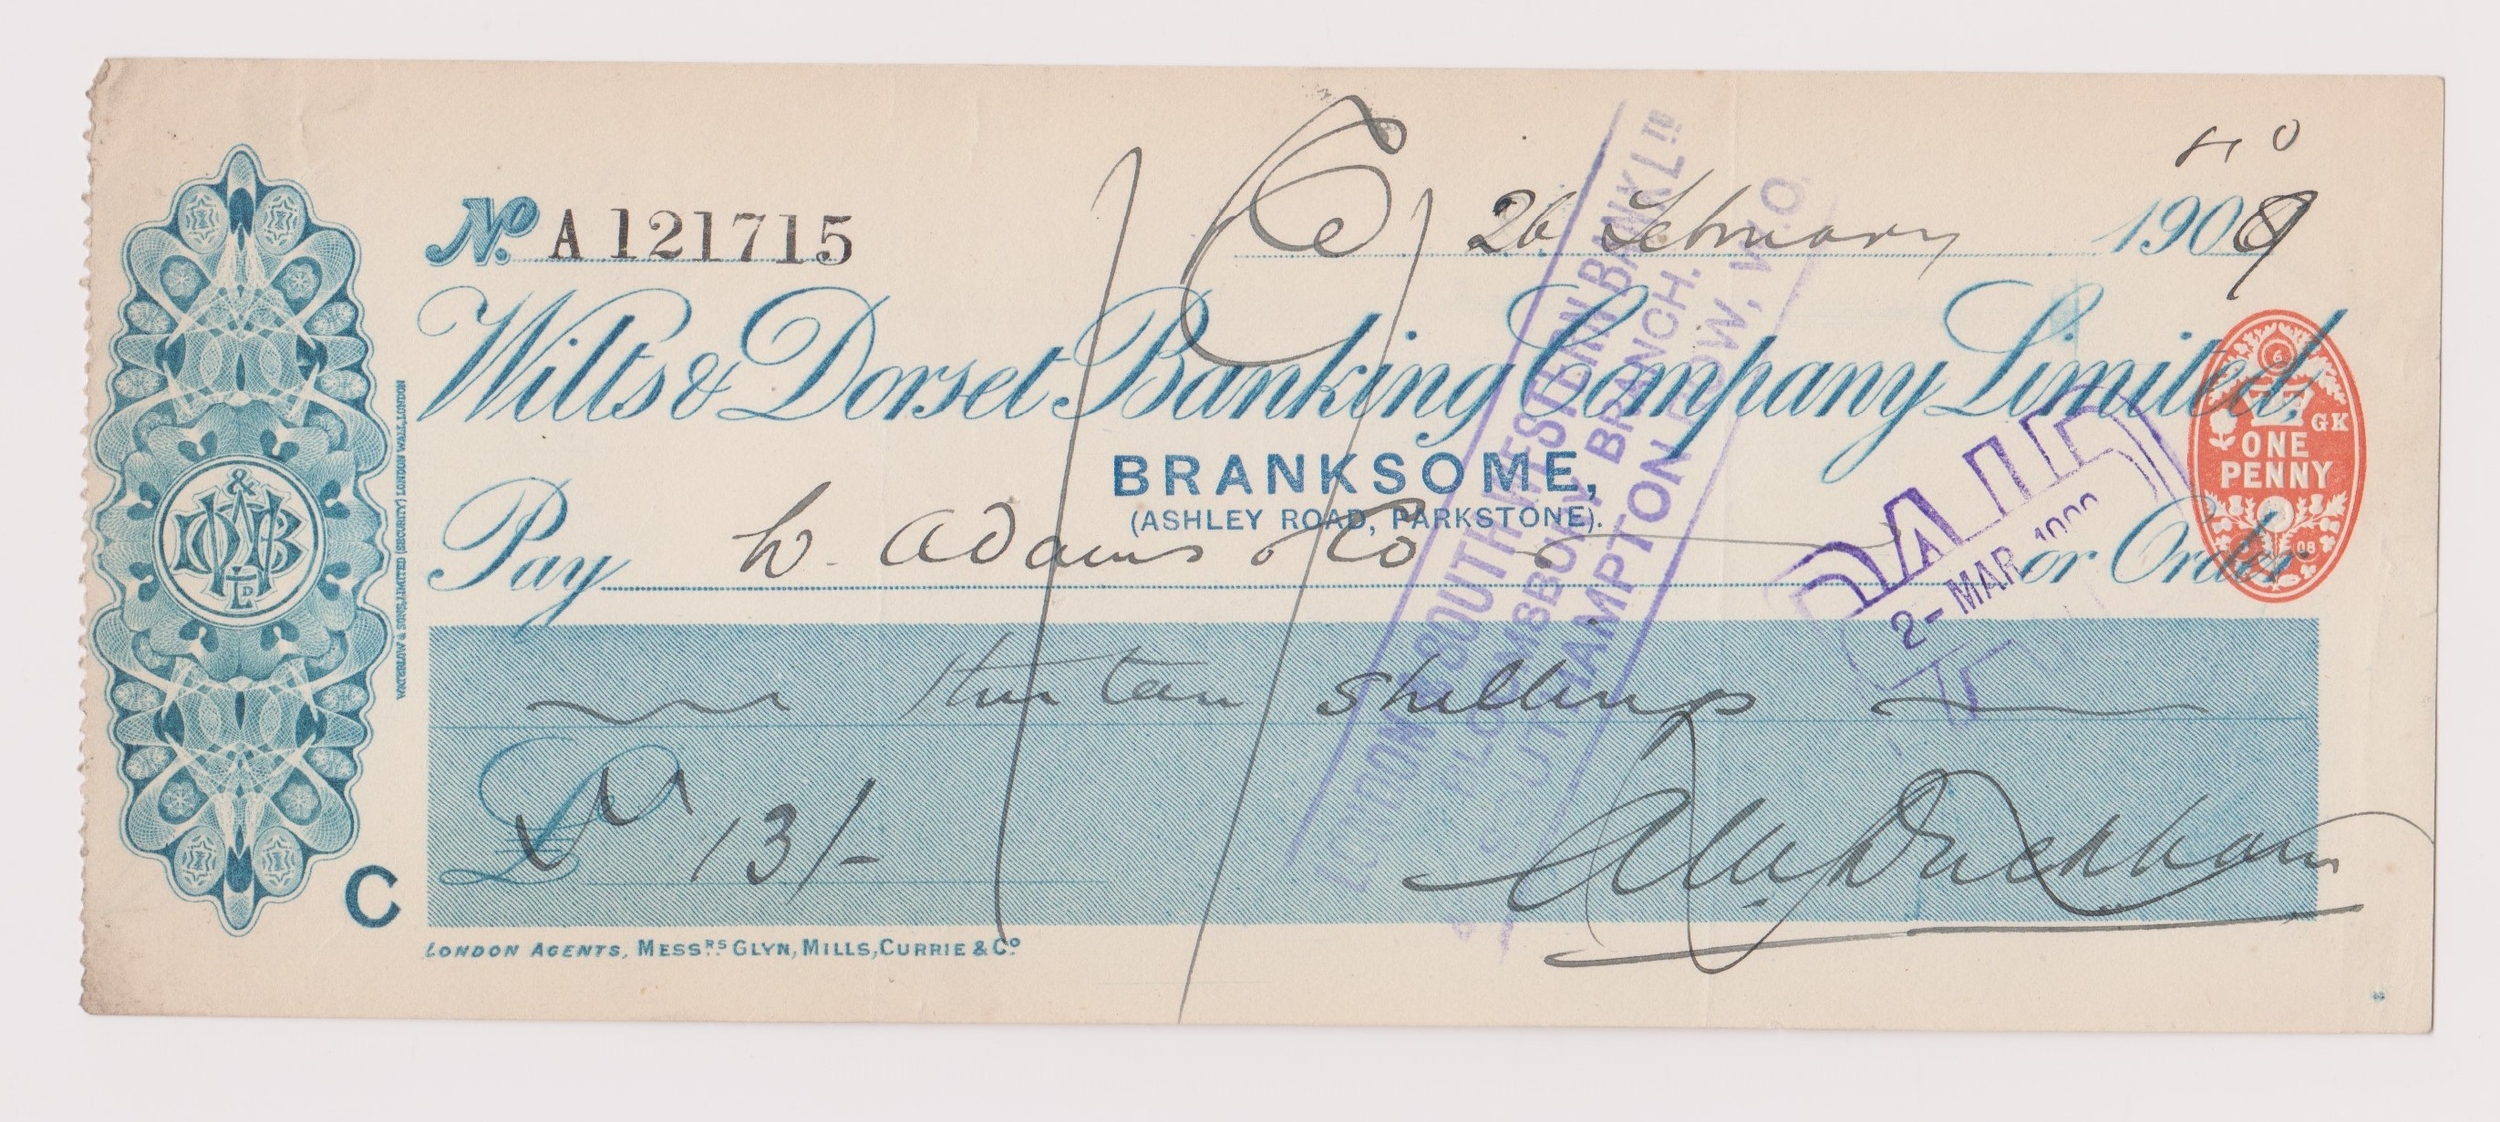 No. A 121715
26 February 1909
Wilts & Dorset Banking Company Limited,
BRANKSOME,
(ASHLEY ROAD, PARKSTONE).
Pay W. Adams & Co or Order
Thirteen shillings
£ 13/-
C
LONDON AGENTS, MESSRS GLYN, MILLS, CURRIE & Co
WATERLOW & SONS, LIMITED (SECURITY) LONDON WALL, LONDON
& WDB LD
LONDON & SOUTH WESTERN BANK LTD
BLOOMSBURY BRANCH.
SOUTHAMPTON ROW, W.C.
PAID
2 - MAR
6
GK
ONE
PENNY
08